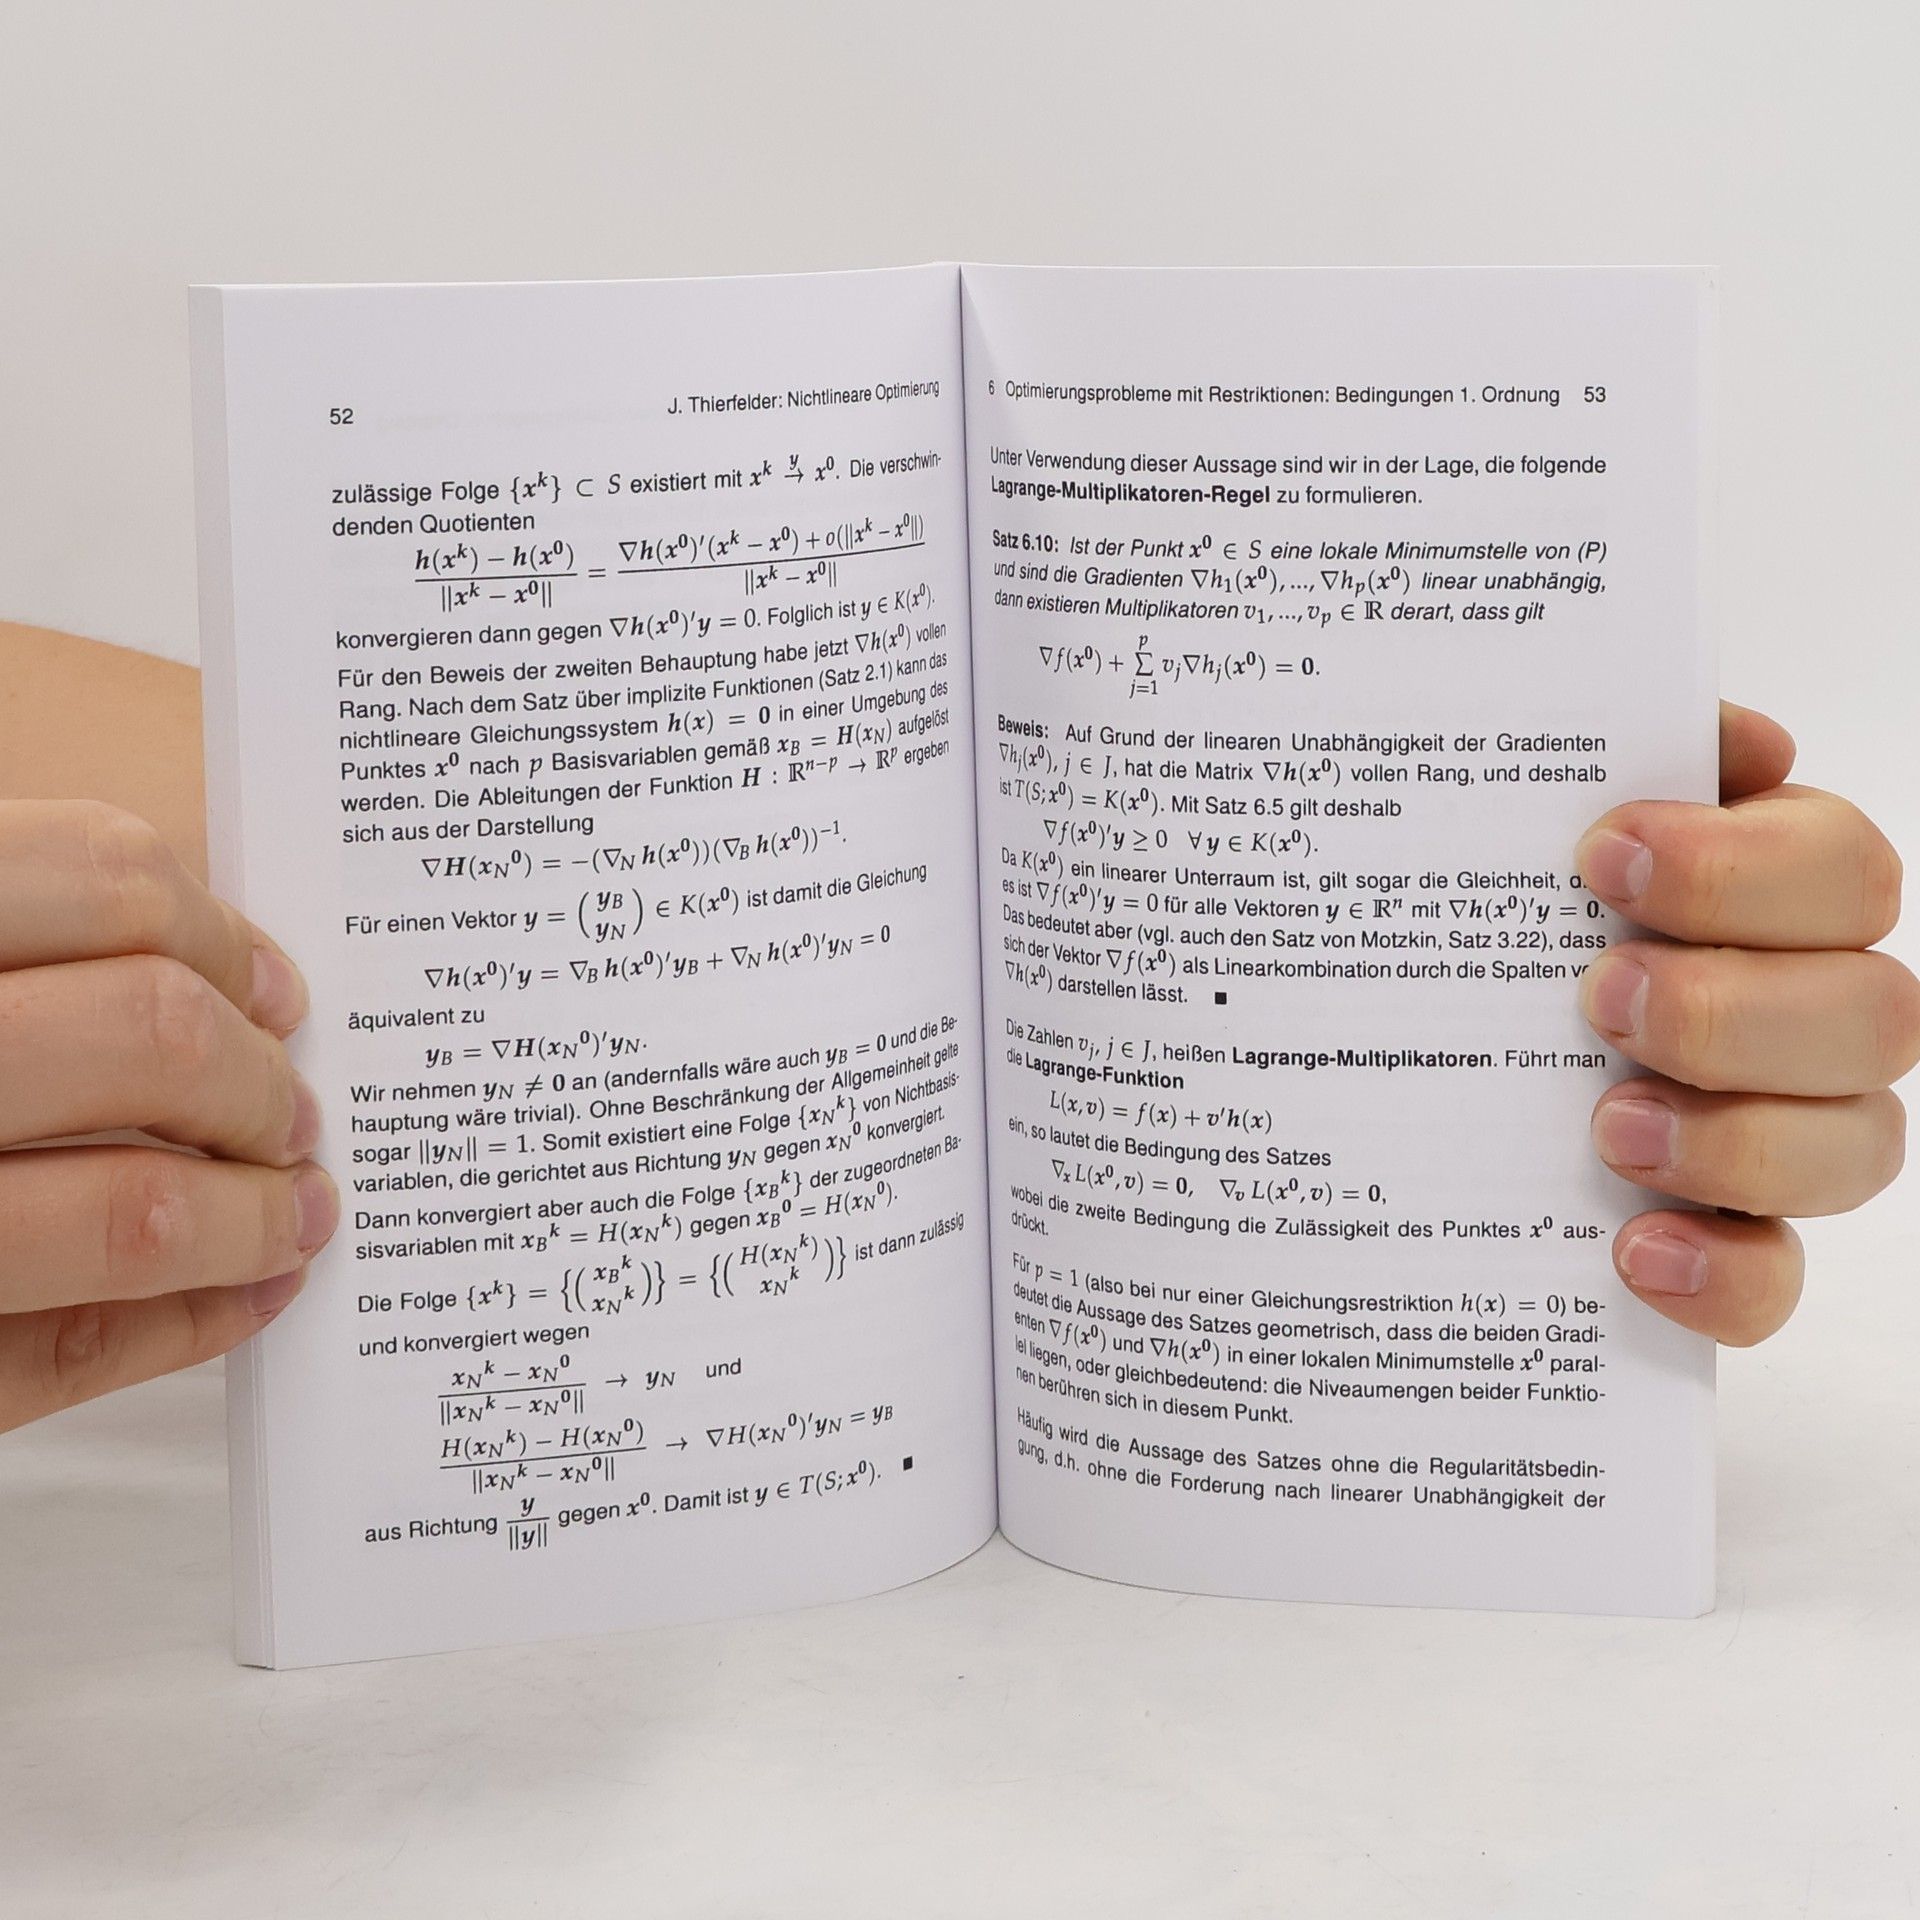 52 J. Thierfelder: Nichtlineare Optimierung
zulässige Folge {xᵏ} ⊂ S existiert mit xᵏ →ʸ x⁰. Die verschwin-
denden Quotienten
(h(xᵏ) − h(x⁰)) / ||xᵏ − x⁰|| = (∇h(x⁰)′(xᵏ − x⁰) + o(||xᵏ − x⁰||)) / ||xᵏ − x⁰||
konvergieren dann gegen ∇h(x⁰)′y = 0. Folglich ist y ∈ K(x⁰).
Für den Beweis der zweiten Behauptung habe jetzt ∇h(x⁰) vollen
Rang. Nach dem Satz über implizite Funktionen (Satz 2.1) kann das
nichtlineare Gleichungssystem h(x) = 0 in einer Umgebung des
Punktes x⁰ nach p Basisvariablen gemäß x_B = H(x_N) aufgelöst
werden. Die Ableitungen der Funktion H : ℝⁿ⁻ᵖ → ℝᵖ ergeben
sich aus der Darstellung
∇H(x_N⁰) = −(∇_N h(x⁰))(∇_B h(x⁰))⁻¹.
Für einen Vektor y = (y_B y_N) ∈ K(x⁰) ist damit die Gleichung
∇h(x⁰)′y = ∇_B h(x⁰)′y_B + ∇_N h(x⁰)′y_N = 0
äquivalent zu
y_B = ∇H(x_N⁰)′y_N.
Wir nehmen y_N ≠ 0 an (andernfalls wäre auch y_B = 0 und die Be-
hauptung wäre trivial). Ohne Beschränkung der Allgemeinheit gelte
sogar ||y_N|| = 1. Somit existiert eine Folge {x_Nᵏ} von Nichtbasis-
variablen, die gerichtet aus Richtung y_N gegen x_N⁰ konvergiert.
Dann konvergiert aber auch die Folge {x_Bᵏ} der zugeordneten Ba-
sisvariablen mit x_Bᵏ = H(x_Nᵏ) gegen x_B⁰ = H(x_N⁰).
Die Folge {xᵏ} = {(x_Bᵏ x_Nᵏ)} = {(H(x_Nᵏ) x_Nᵏ)} ist dann zulässig
und konvergiert wegen
(x_Nᵏ − x_N⁰) / ||x_Nᵏ − x_N⁰|| → y_N und
(H(x_Nᵏ) − H(x_N⁰)) / ||x_Nᵏ − x_N⁰|| → ∇H(x_N⁰)′y_N = y_B
aus Richtung y / ||y|| gegen x⁰. Damit ist y ∈ T(S; x⁰). ■
6 Optimierungsprobleme mit Restriktionen: Bedingungen 1. Ordnung 53
Unter Verwendung dieser Aussage sind wir in der Lage, die folgende
Lagrange-Multiplikatoren-Regel zu formulieren.
Satz 6.10: Ist der Punkt x⁰ ∈ S eine lokale Minimumstelle von (P)
und sind die Gradienten ∇h₁(x⁰), ..., ∇hₚ(x⁰) linear unabhängig,
dann existieren Multiplikatoren v₁, ..., vₚ ∈ ℝ derart, dass gilt
∇f(x⁰) + ∑_{j=1}^{p} vⱼ∇hⱼ(x⁰) = 0.
Beweis: Auf Grund der linearen Unabhängigkeit der Gradienten
∇hⱼ(x⁰), j ∈ J, hat die Matrix ∇h(x⁰) vollen Rang, und deshalb
ist T(S; x⁰) = K(x⁰). Mit Satz 6.5 gilt deshalb
∇f(x⁰)′y ≥ 0 ∀ y ∈ K(x⁰).
Da K(x⁰) ein linearer Unterraum ist, gilt sogar die Gleichheit,
es ist ∇f(x⁰)′y = 0 für alle Vektoren y ∈ ℝⁿ mit ∇h(x⁰)′y = 0.
Das bedeutet aber (vgl. auch den Satz von Motzkin, Satz 3.22), dass
sich der Vektor ∇f(x⁰) als Linearkombination durch die Spalten
∇h(x⁰) darstellen lässt. ■
Die Zahlen vⱼ, j ∈ J, heißen Lagrange-Multiplikatoren. Führt man
die Lagrange-Funktion
L(x, v) = f(x) + v′h(x)
ein, so lautet die Bedingung des Satzes
∇ₓL(x⁰, v) = 0, ∇ᵥL(x⁰, v) = 0,
wobei die zweite Bedingung die Zulässigkeit des Punktes x⁰ aus-
drückt.
Für p = 1 (also bei nur einer Gleichungsrestriktion h(x) = 0) be-
deutet die Aussage des Satzes geometrisch, dass die beiden Gradi-
enten ∇f(x⁰) und ∇h(x⁰) in einer lokalen Minimumstelle x⁰ paral-
lel liegen, oder gleichbedeutend: die Niveaumengen beider Funktio-
nen berühren sich in diesem Punkt.
Häufig wird die Aussage des Satzes ohne die Regularitätsbedin-
gung, d.h. ohne die Forderung nach linearer Unabhängigkeit der